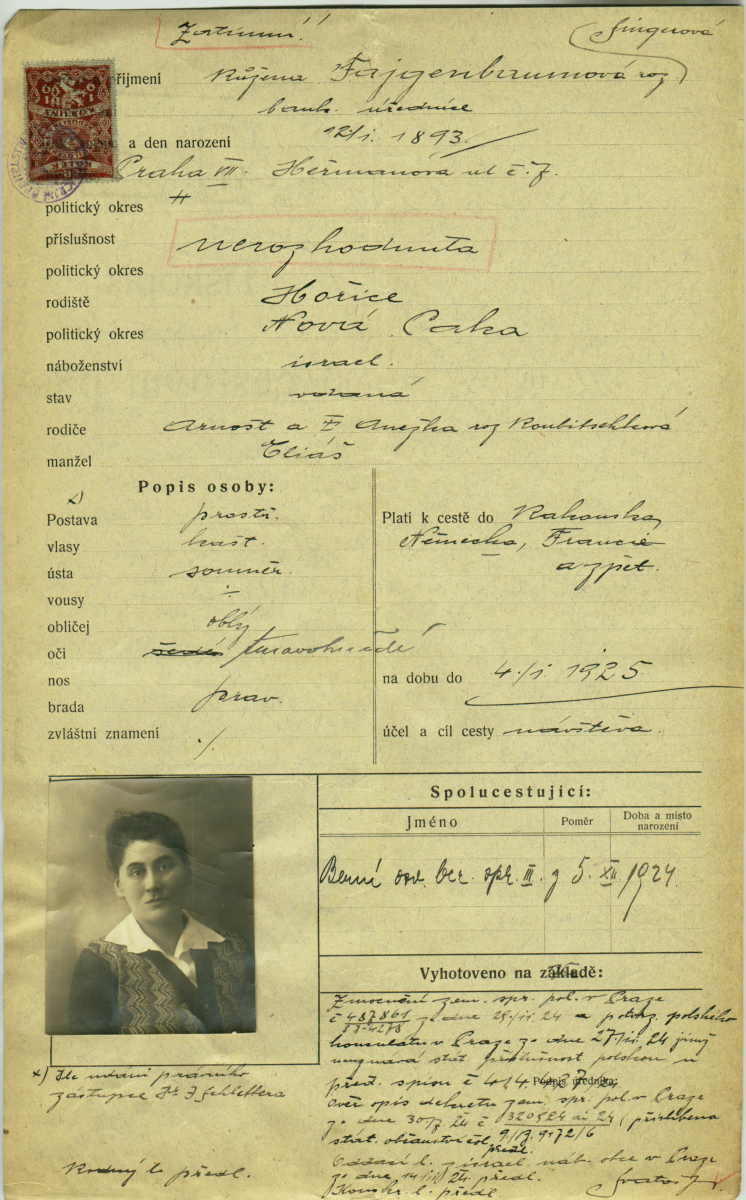 Singerová
příjmení Růžena Fajgenbaumová roz
bank. úřednice
a den narození 12/I. 1893.
Praha VII. Heřmanova ul č. 7.
politický okres "
příslušnost nerozhodnuta
politický okres
rodiště Hořice
politický okres Nová Paka
náboženství israel.
stav vdaná
rodiče Arnošt a Anežka roz Roubitschková
manžel Eliáš
Popis osoby:
x)
Postava prostř.
vlasy kašt.
ústa souměr.
vousy ÷
obličej oblý
oči šedé tmavohnědé
nos
brada prav.
zvláštní znamení ./.
Platí k cestě do Rakouska,
Německa, Francie
a zpět.
na dobu do 4./I. 1925
účel a cíl cesty návštěva.
Spolucestující:
Jméno Poměr Doba a místo narození
Berní osv. ber. spr. III. z 5. XII. 1924.
Vyhotoveno na základě:
Zmocnění zem. spr. pol. v Praze
č 487861 ze dne 24 a potvrz. polského
konsulátu v Praze ze dne 27/ 24 jímž
neuznává stát. příslušnost polskou u
před. spisu č
Podpis úředníka:
ověř opis dekretu zem. spr. pol. v Praze
ze dne 30/ 24 č 320524 ai 24 (přislíbena
stát. občanství čsl.
předl.
Oddací l. israel. náb. obce v Praze
ze dne 24 předl.
l. předl.
x) Dle udání právního
zástupce Dr.
Rodný l. předl.